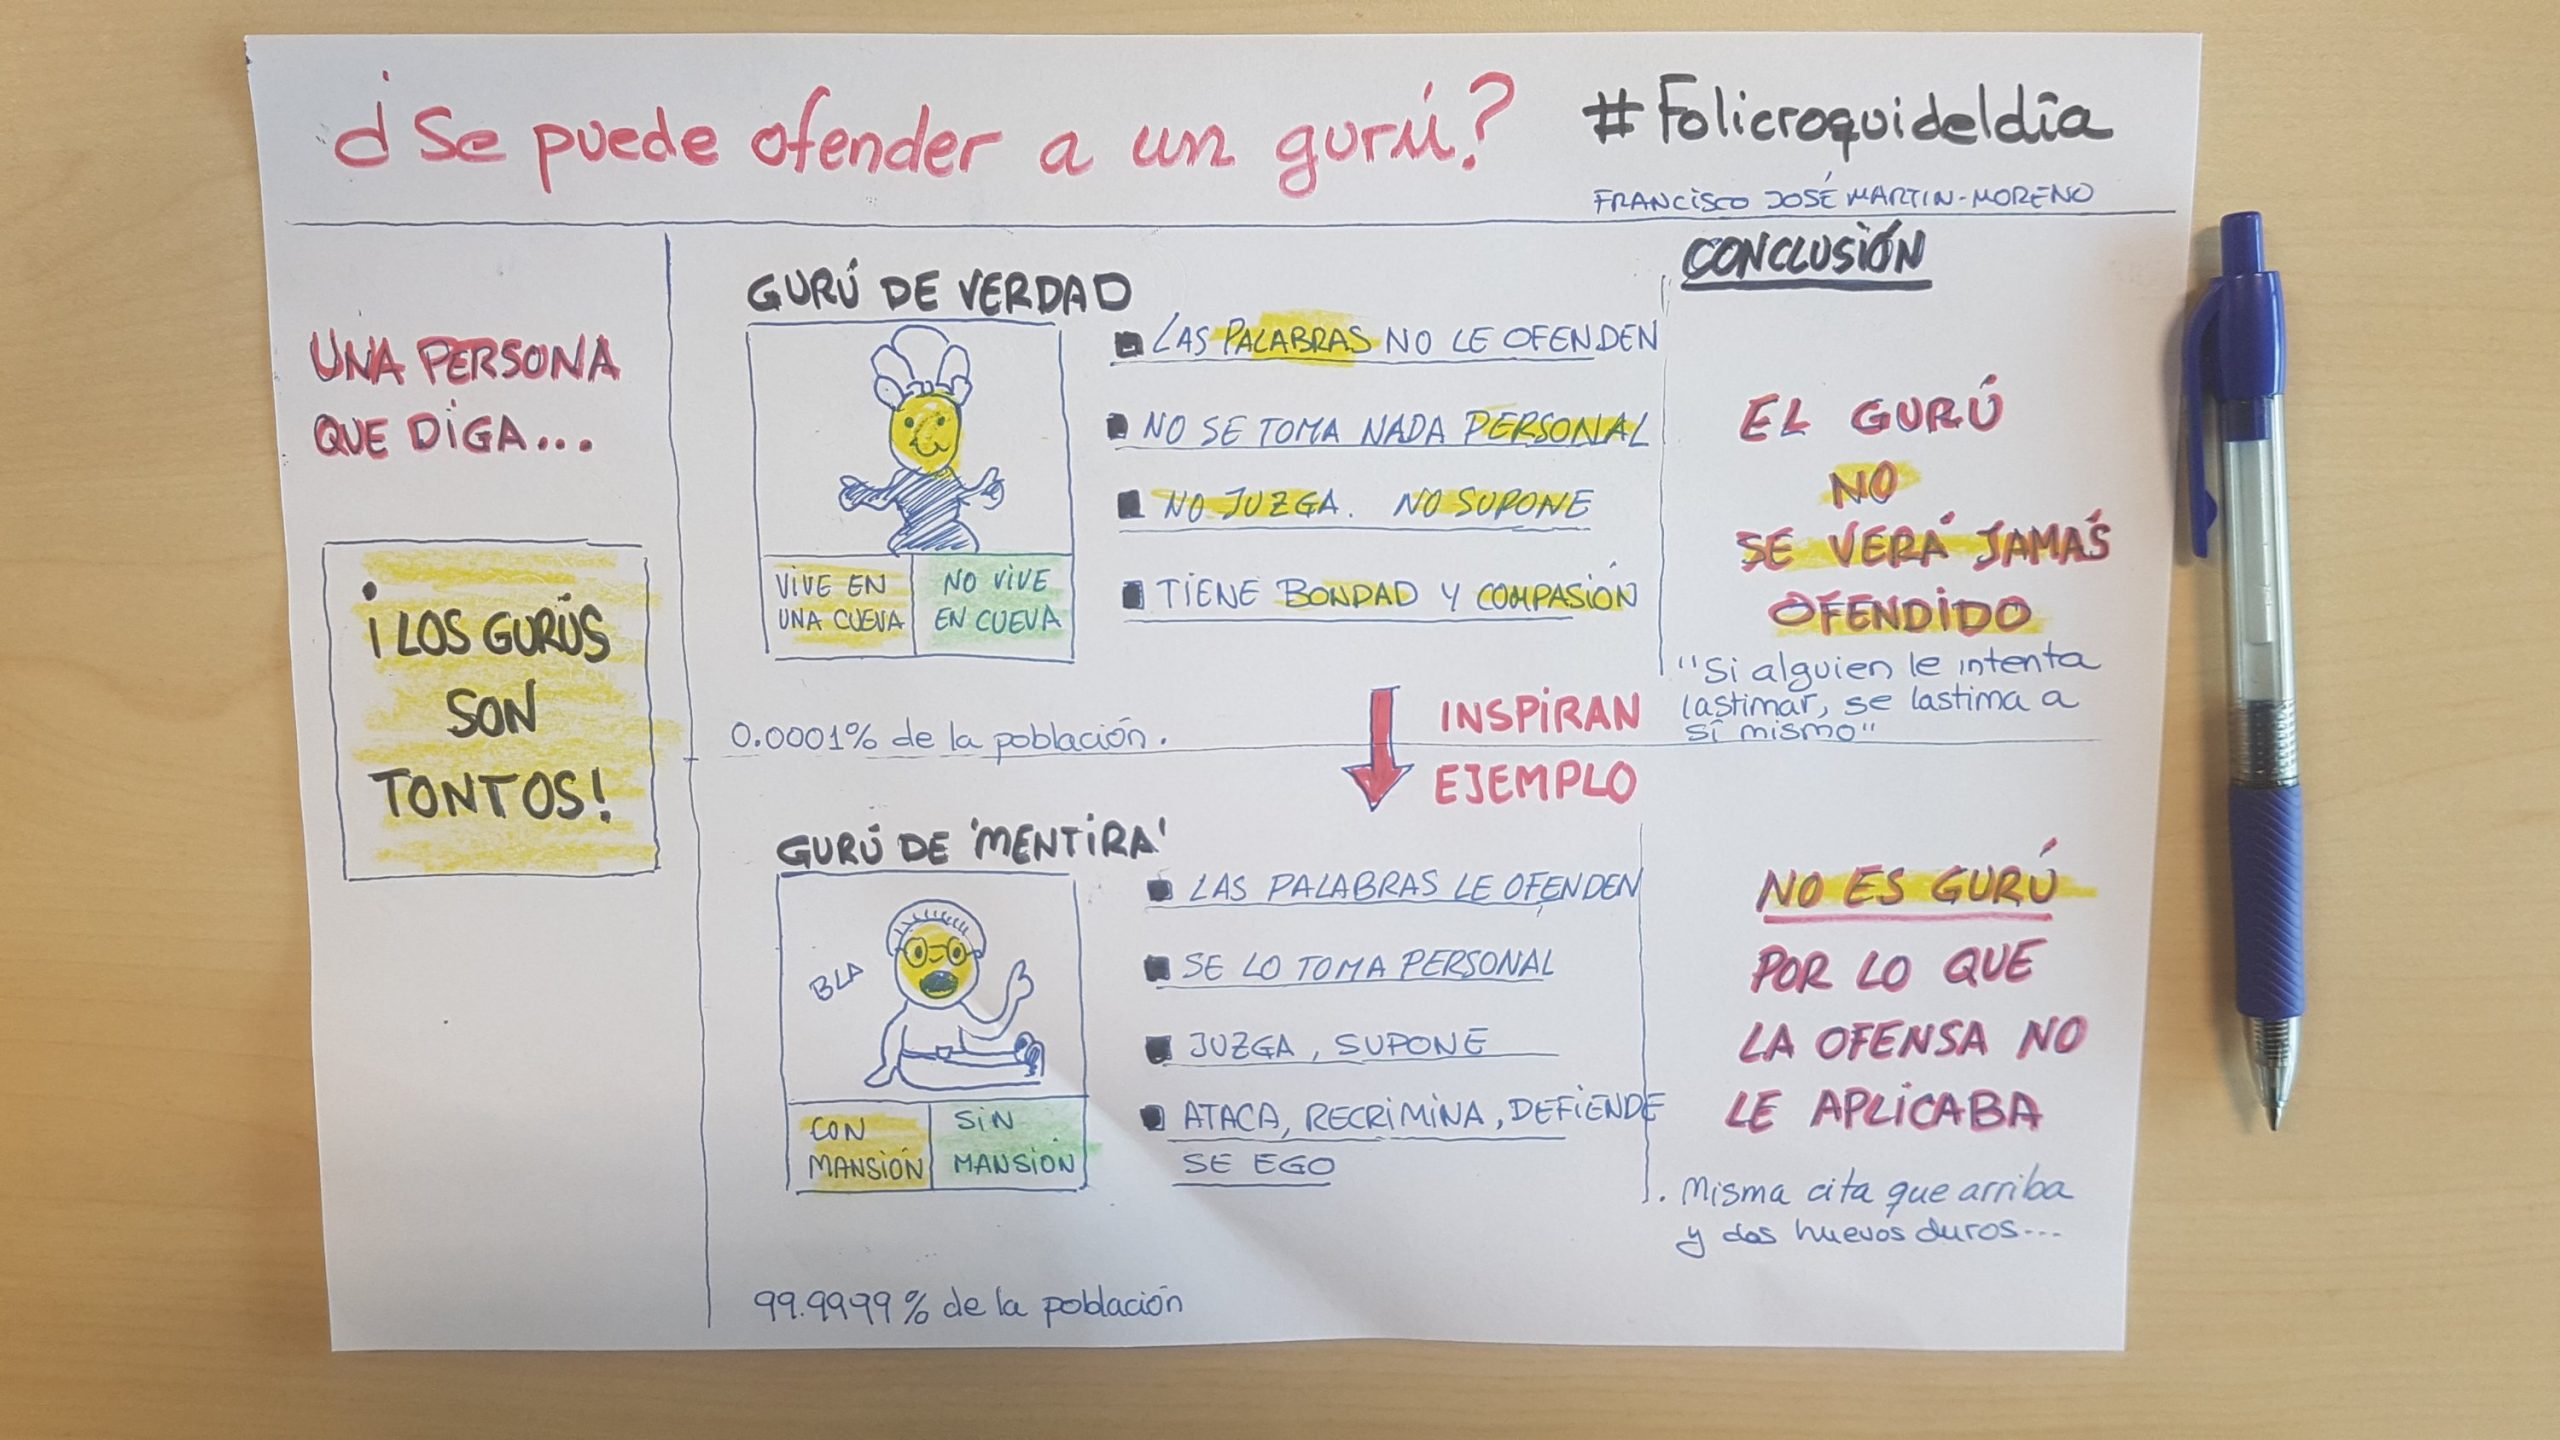 ¿Se puede ofender a un gurú?
#Folicroquideldía
FRANCISCO JOSÉ MARTIN-MORENO
UNA PERSONA
QUE DIGA...
¡LOS GURÚS
SON
TONTOS!
GURÚ DE VERDAD
VIVE EN
UNA CUEVA
NO VIVE
EN CUEVA
LAS PALABRAS NO LE OFENDEN
NO SE TOMA NADA PERSONAL
NO JUZGA. NO SUPONE
TIENE BONDAD Y COMPASIÓN
0.0001% de la población.
INSPIRAN
EJEMPLO
CONCLUSIÓN
EL GURÚ
NO
SE VERÁ JAMÁS
OFENDIDO
"Si alguien le intenta
lastimar, se lastima a
sí mismo"
GURÚ DE 'MENTIRA'
BLA
CON
MANSIÓN
SIN
MANSIÓN
LAS PALABRAS LE OFENDEN
SE LO TOMA PERSONAL
JUZGA, SUPONE
ATACA, RECRIMINA, DEFIENDE
SE EGO
99.9999% de la población
NO ES GURÚ
POR LO QUE
LA OFENSA NO
LE APLICABA
. Misma cita que arriba
y dos huevos duros...